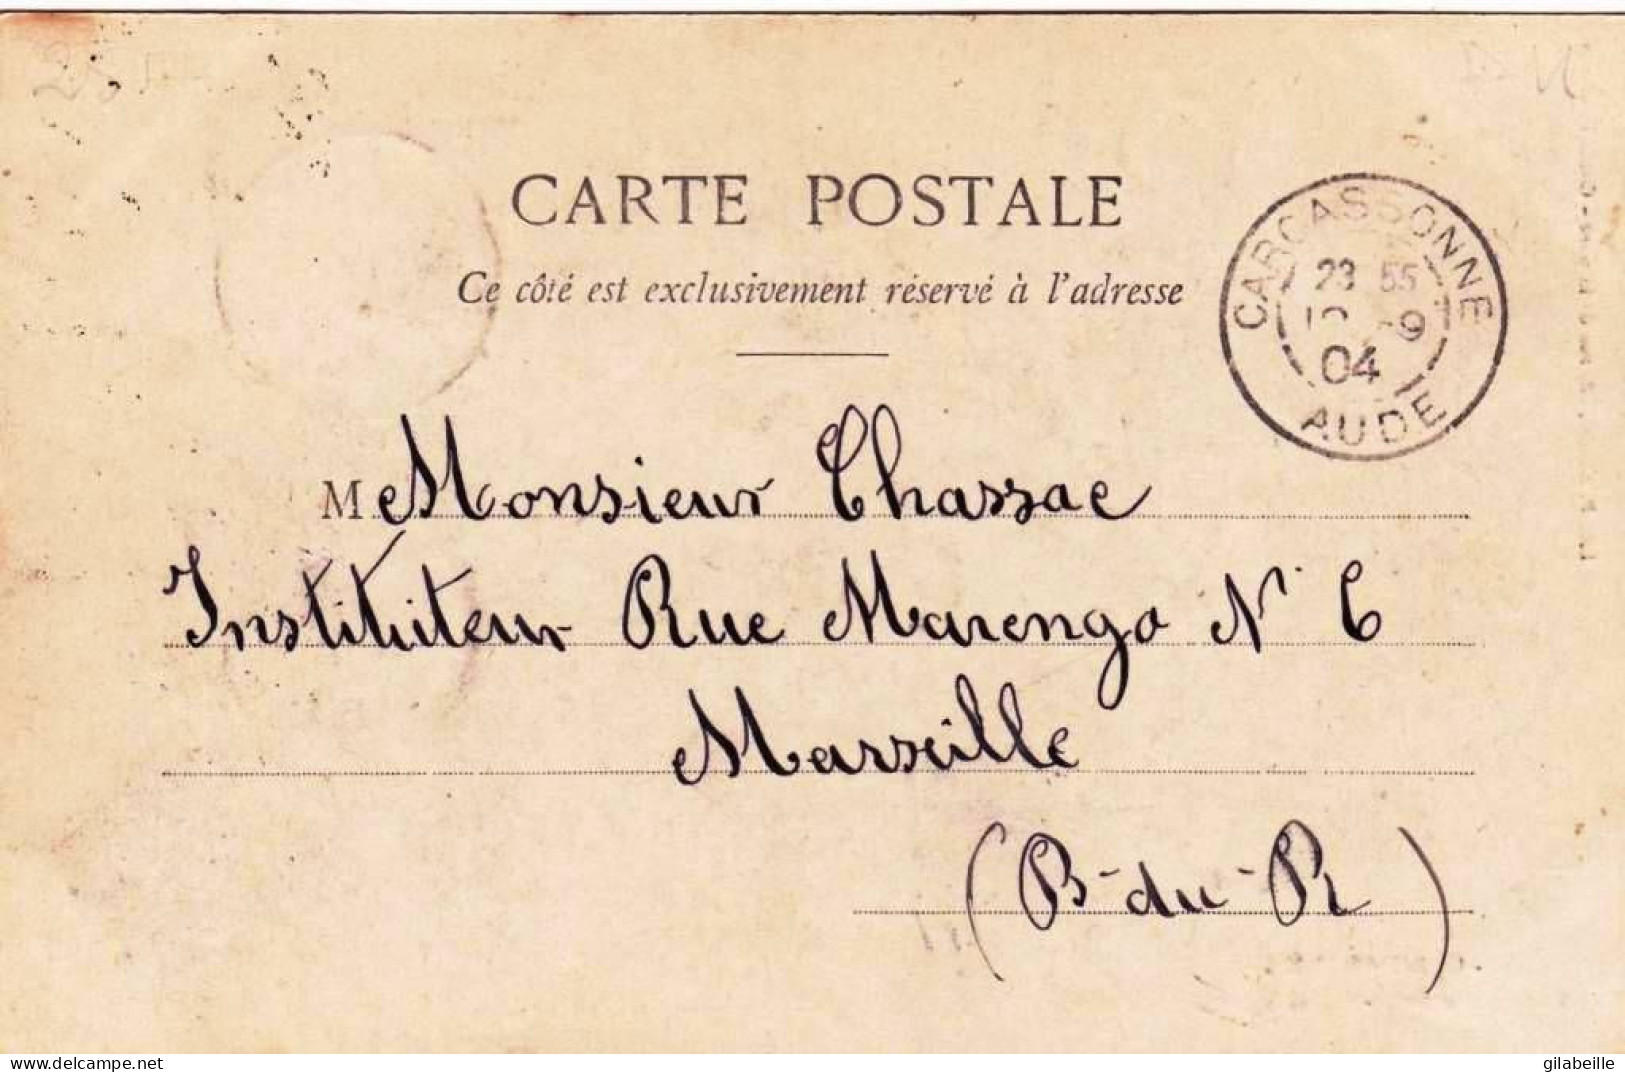 CARTE POSTALE
Ce côté est exclusivement réservé à l'adresse
CARCASSONNE
23 55
04
AUDE
M Monsieur Chassac
Instituteur Rue Marengo N° 6
Marseille
(B-du-R)
www.delcampe.net
gilabeille